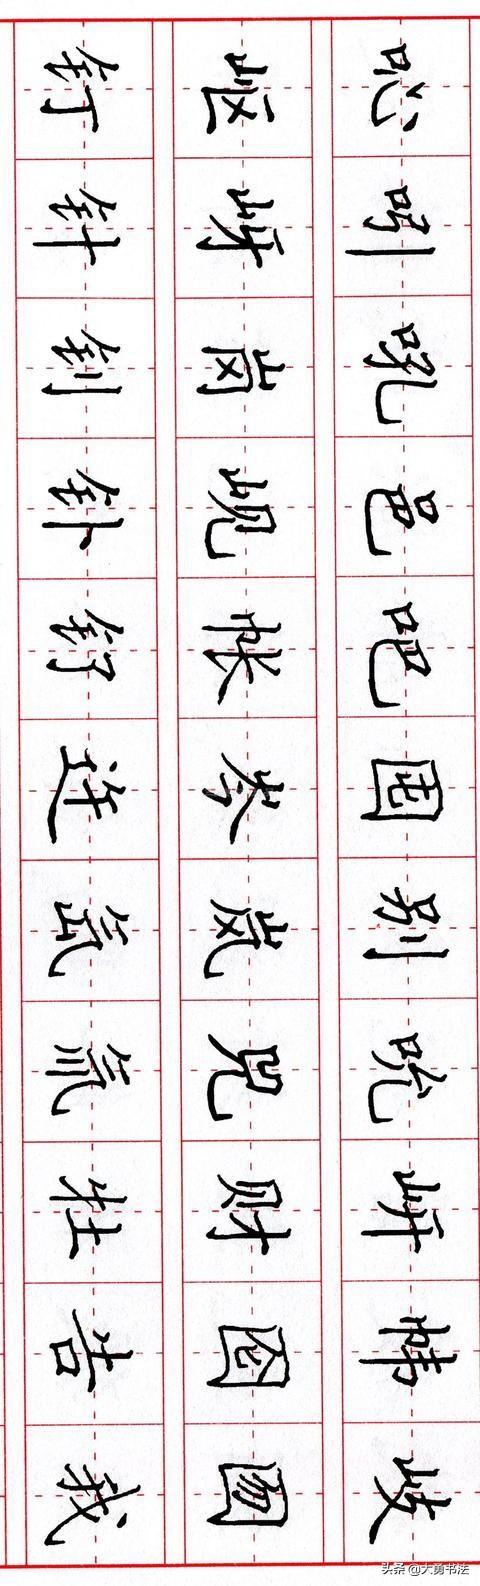 吣吲吼邑吧囤别吮岍帏岐
岖岈岗岘帐岑岚兕财囵囫
钉针钊钋钌迕氙氚牡告我
头条 @大勇书法